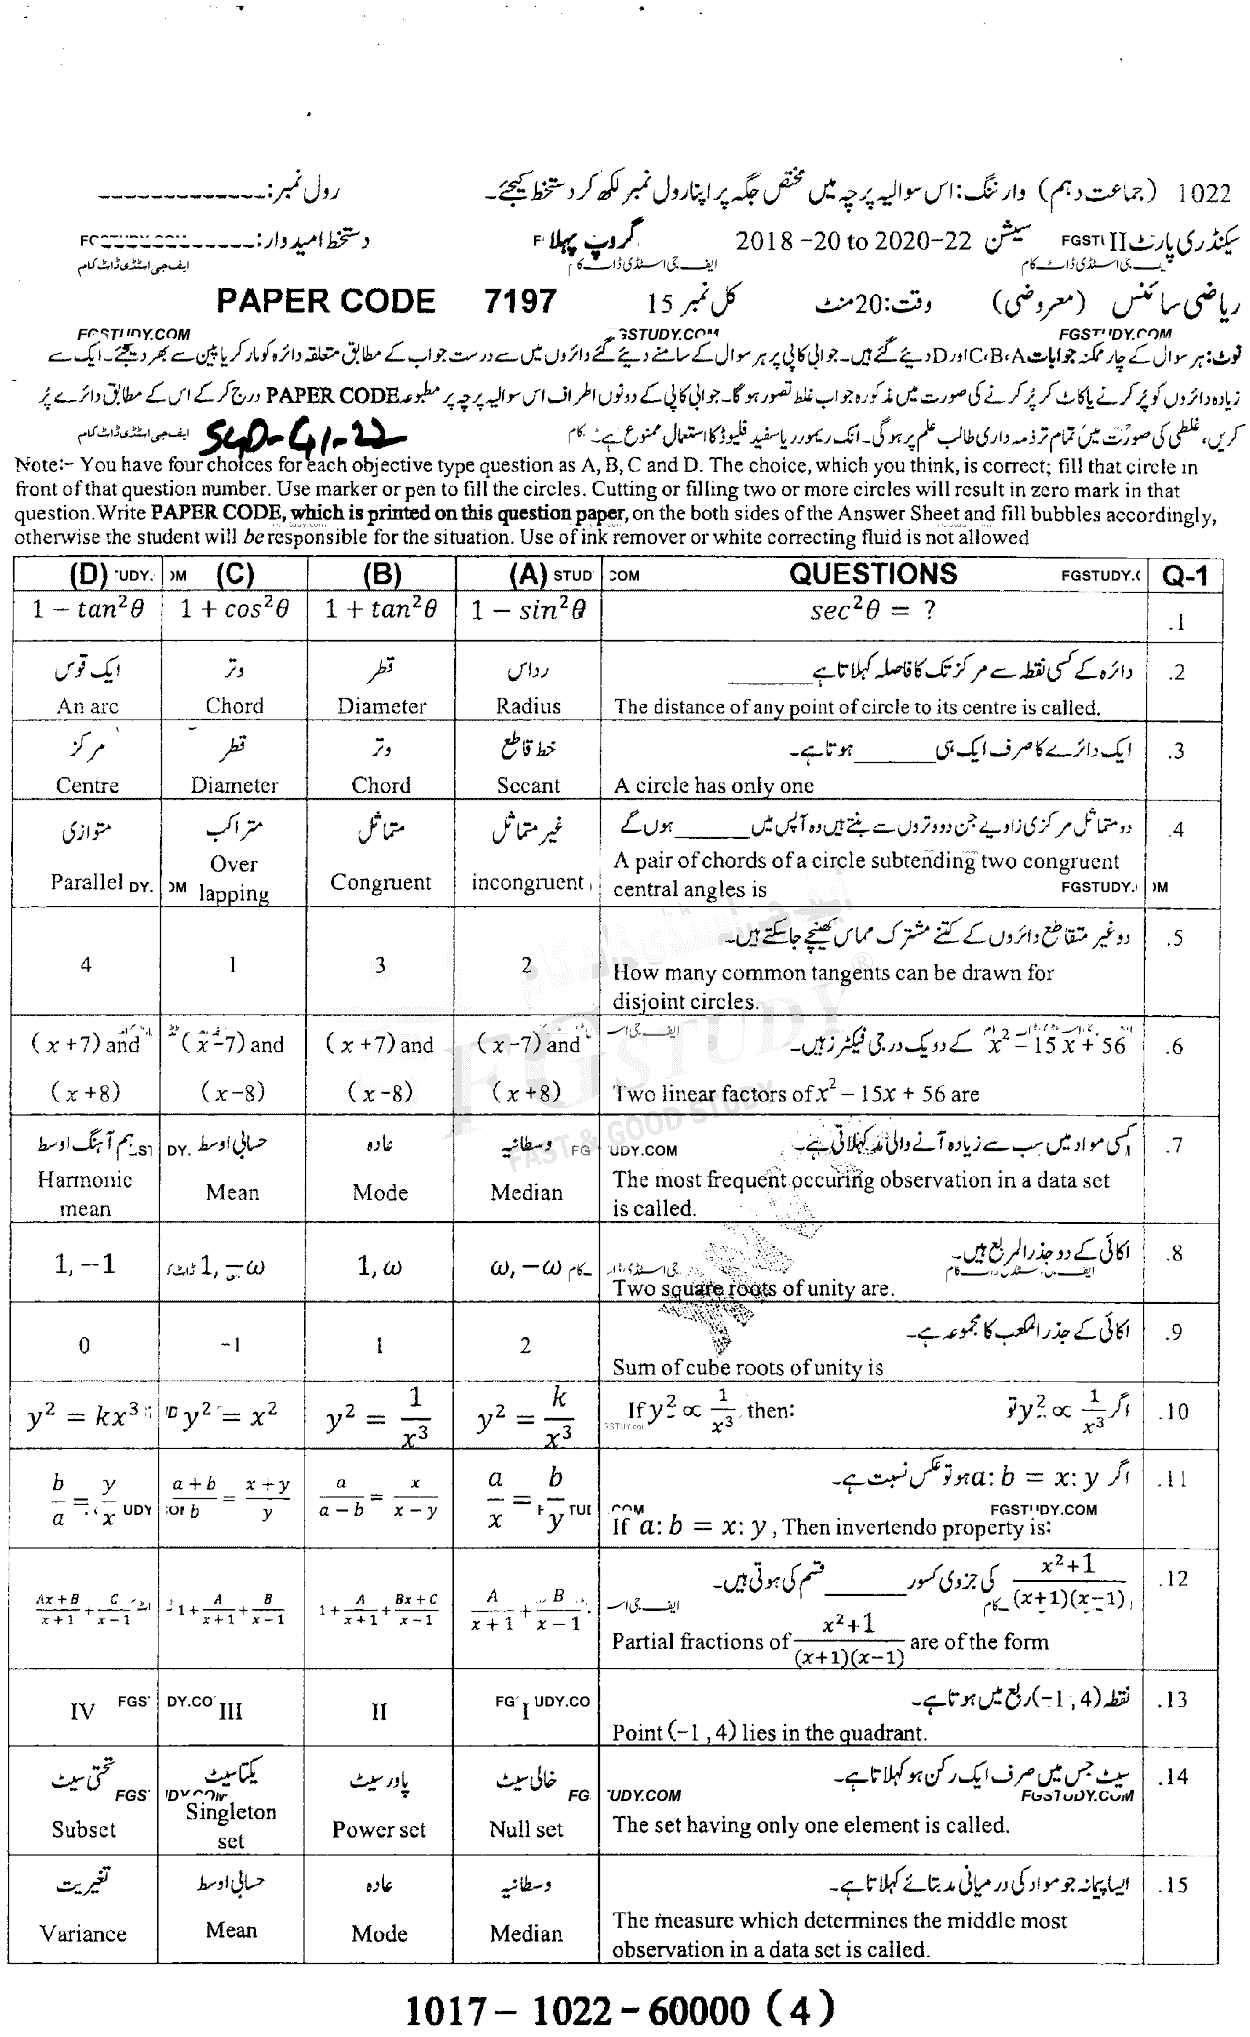 1022 (جماعت دہم) وارننگ: اس سوالیہ پرچہ میں مختص جگہ پر اپنا رول نمبر لکھ کر دستخط کیجئے۔ رول نمبر: -------------
سیکنڈری پارٹ II سیشن 2018 -20 to 2020-22 گروپ پہلا دستخط امیدوار: -------------
ایف جی اسٹڈی ڈاٹ کام
ریاضی سائنس (معروضی) وقت: 20 منٹ کل نمبر 15 PAPER CODE 7197
FGSTUDY.COM
نوٹ: ہر سوال کے چار ممکنہ جوابات A، B، C اور D دیئے گئے ہیں۔ جوابی کاپی پر ہر سوال کے سامنے دیئے گئے دائروں میں سے درست جواب کے مطابق متعلقہ دائرہ کو مارکر یا پین سے بھر دیجئے۔ ایک سے
زیادہ دائروں کو پُر کرنے یا کاٹ کر پُر کرنے کی صورت میں مذکورہ جواب غلط تصور ہو گا۔ جوابی کاپی کے دونوں اطراف اس سوالیہ پرچہ پر مطبوعہ PAPER CODE درج کر کے اس کے مطابق دائرے پُر
کریں، غلطی کی صورت میں تمام تر ذمہ داری طالب علم پر ہو گی۔ انک ریموور یا سفید فلیوڈ کا استعمال ممنوع ہے۔
SGD-G1-22
Note:- You have four choices for each objective type question as A, B, C and D. The choice, which you think, is correct; fill that circle in
front of that question number. Use marker or pen to fill the circles. Cutting or filling two or more circles will result in zero mark in that
question. Write PAPER CODE, which is printed on this question paper, on the both sides of the Answer Sheet and fill bubbles accordingly,
otherwise the student will be responsible for the situation. Use of ink remover or white correcting fluid is not allowed
(D) (C) (B) (A) QUESTIONS Q-1
1 − tan²θ 1 + cos²θ 1 + tan²θ 1 − sin²θ sec²θ = ? .1
ایک قوس وتر قطر رداس دائرہ کے کسی نقطہ سے مرکز تک کا فاصلہ کہلاتا ہے ______ .2
An arc Chord Diameter Radius The distance of any point of circle to its centre is called.
مرکز قطر وتر خط قاطع ایک دائرے کا صرف ایک ہی ______ ہوتا ہے۔ .3
Centre Diameter Chord Secant A circle has only one
متوازی متراکب متماثل غیر متماثل دو متماثل مرکزی زاویے جن دو وتروں سے بنتے ہیں وہ آپس میں ______ ہوں گے .4
Parallel Over lapping Congruent incongruent A pair of chords of a circle subtending two congruent
central angles is
دو غیر متقاطع دائروں کے کتنے مشترک مماس کھینچے جا سکتے ہیں۔ .5
4 1 3 2 How many common tangents can be drawn for
disjoint circles.
(x+7) and (x−7) and (x+7) and (x−7) and x² − 15x + 56 کے دو یک درجی فیکٹرز ہیں۔ .6
(x+8) (x−8) (x−8) (x+8) Two linear factors of x² − 15x + 56 are
ہم آہنگ اوسط حسابی اوسط عادہ وسطانیہ کسی مواد میں سب سے زیادہ آنے والی مد کہلاتی ہے۔ .7
Harmonic mean Mean Mode Median The most frequent occuring observation in a data set
is called.
1, −1 1, −ω 1, ω ω, −ω اکائی کے دو جذر المربع ہیں۔ .8
Two square roots of unity are.
اکائی کے جذر المکعب کا مجموعہ ہے۔ .9
0 −1 1 2 Sum of cube roots of unity is
y² = kx³ y² = x² y² = 1/x³ y² = k/x³ If y² ∝ 1/x³, then: اگر y² ∝ 1/x³ تو .10
b/a = y/x (a+b)/b = (x+y)/y a/(a−b) = x/(x−y) a/x = b/y اگر a: b = x: y ہو تو عکس نسبت ہے۔ .11
If a: b = x: y, Then invertendo property is:
(x²+1)/((x+1)(x−1)) کی جزوی کسور ______ قسم کی ہوتی ہیں۔ .12
(Ax+B)/(x+1) + C/(x−1) 1 + A/(x+1) + B/(x−1) 1 + A/(x+1) + (Bx+C)/(x−1) A/(x+1) + B/(x−1) Partial fractions of (x²+1)/((x+1)(x−1)) are of the form
نقطہ (−1, 4) ربع میں ہوتا ہے۔ .13
IV III II I Point (−1, 4) lies in the quadrant.
تحتی سیٹ یکتا سیٹ پاور سیٹ خالی سیٹ سیٹ جس میں صرف ایک رکن ہو کہلاتا ہے۔ .14
Subset Singleton set Power set Null set The set having only one element is called.
تغیریت حسابی اوسط عادہ وسطانیہ ایسا پیمانہ جو مواد کی درمیانی مد بتائے کہلاتا ہے۔ .15
Variance Mean Mode Median The measure which determines the middle most
observation in a data set is called.
FGSTUDY
FAST & GOOD STUDY
1017 – 1022 – 60000 (4)